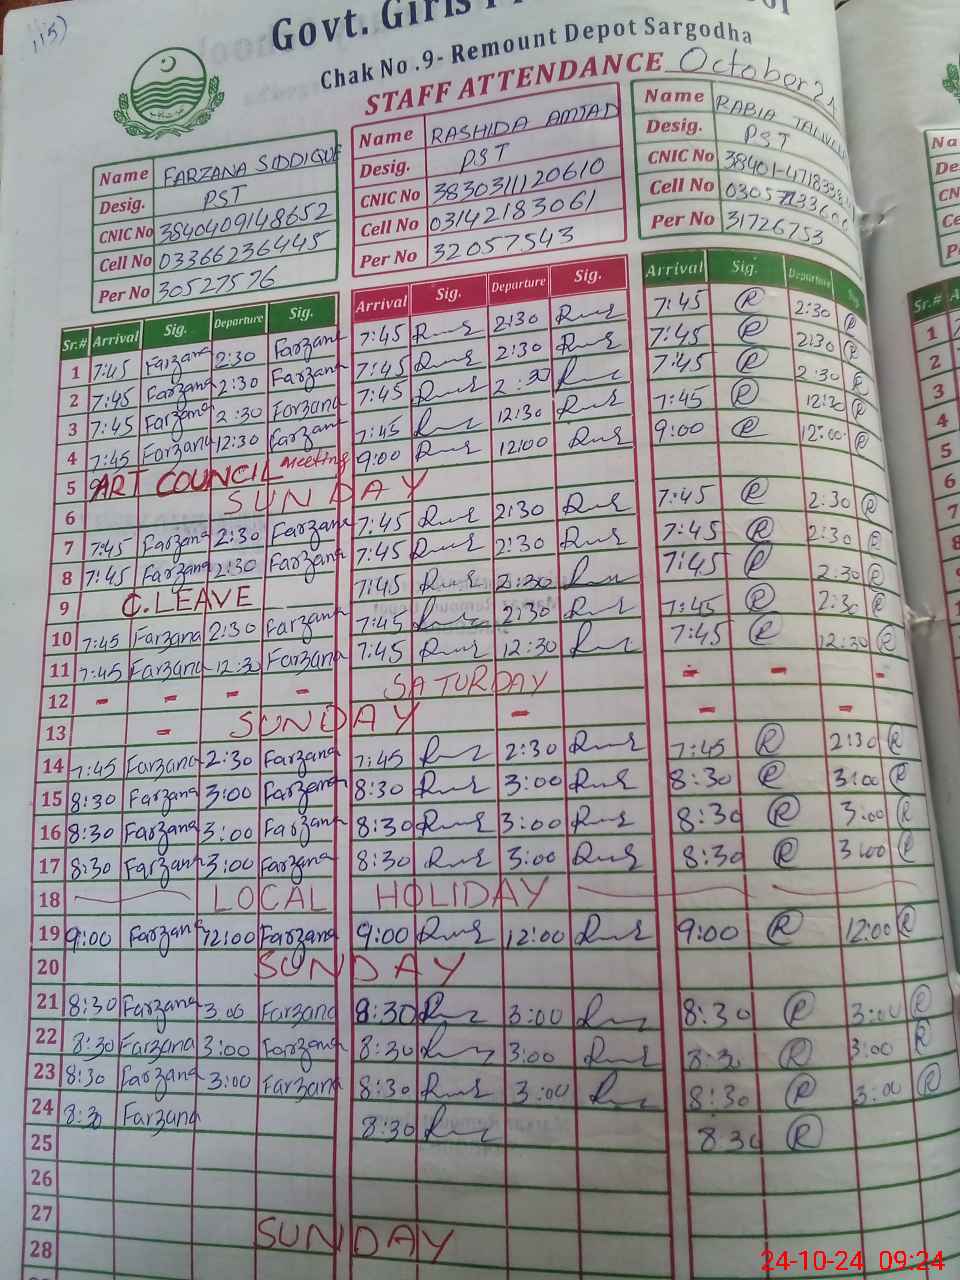 115)
Govt. Girls P
Chak No .9- Remount Depot Sargodha
STAFF ATTENDANCE October 24
Name FARZANA SIDDIQUE
Desig. PST
CNIC No 3840409148652
Cell No 03366236445
Per No 30527576
Name RASHIDA AMJAD
Desig. PST
CNIC No 3830311120610
Cell No 03142183061
Per No 32057543
Name RABIA
Desig. PST
CNIC No
Cell No
Per No 31726753
Sr.# Arrival Sig. Departure Sig. Arrival Sig. Departure Sig. Arrival Sig. Departure
1 7:45 Farzana 2:30 Farzana 7:45 2:30 7:45 R 2:30 R
2 7:45 Farzana 2:30 Farzana 7:45 2:30 7:45 R 2:30 R
3 7:45 Farzana 2:30 Farzana 7:45 2:30 7:45 R 2:30 R
4 7:45 Farzana 12:30 Farzana 7:45 12:30 7:45 R 12:30 R
5 ART COUNCIL Meeting 9:00 12:00 9:00 R 12:00 R
6 SUNDAY
7 7:45 Farzana 2:30 Farzana 7:45 2:30 7:45 R 2:30 R
8 7:45 Farzana 2:30 Farzana 7:45 2:30 7:45 R 2:30 R
9 C.LEAVE 7:45 2:30 7:45 R 2:30 R
10 7:45 Farzana 2:30 Farzana 7:45 2:30 7:45 R 2:30 R
11 7:45 Farzana 12:30 Farzana 7:45 12:30 7:45 R 12:30 R
12 - - - - SATURDAY - - -
13 - SUNDAY - - -
14 7:45 Farzana 2:30 Farzana 7:45 2:30 7:45 R 2:30 R
15 8:30 Farzana 3:00 Farzana 8:30 3:00 8:30 R 3:00 R
16 8:30 Farzana 3:00 Farzana 8:30 3:00 8:30 R 3:00 R
17 8:30 Farzana 3:00 Farzana 8:30 3:00 8:30 R 3:00 R
18 LOCAL HOLIDAY
19 9:00 Farzana 12:00 Farzana 9:00 12:00 9:00 R 12:00 R
20 SUNDAY
21 8:30 Farzana 3:00 Farzana 8:30 3:00 8:30 R 3:00 R
22 8:30 Farzana 3:00 Farzana 8:30 3:00 8:30 R 3:00 R
23 8:30 Farzana 3:00 Farzana 8:30 3:00 8:30 R 3:00 R
24 8:30 Farzana 8:30 8:30 R
25
26
27 SUNDAY
28
24-10-24 09:24